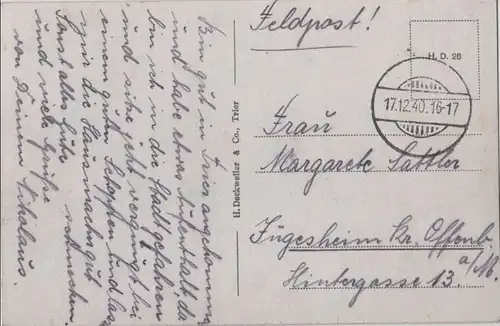 Feldpost!
H. D. 26
17.12.40.16-17
Frau
Margarete Sattler
Jügesheim Kr. Offenb
a/M.
Hintergasse 13.
H. Deckweiler & Co., Trier
Bin gut in Trier angekommen
und habe etwas Aufenthalt, da
bin ich in die Stadt gefahren
und sitze jetzt vergnügt bei
einem guten Schoppen und lass
mir die Hausmacher gut
schmecken.
Sonst alles Gute
und viele Grüße
von Deinem Nikolaus.